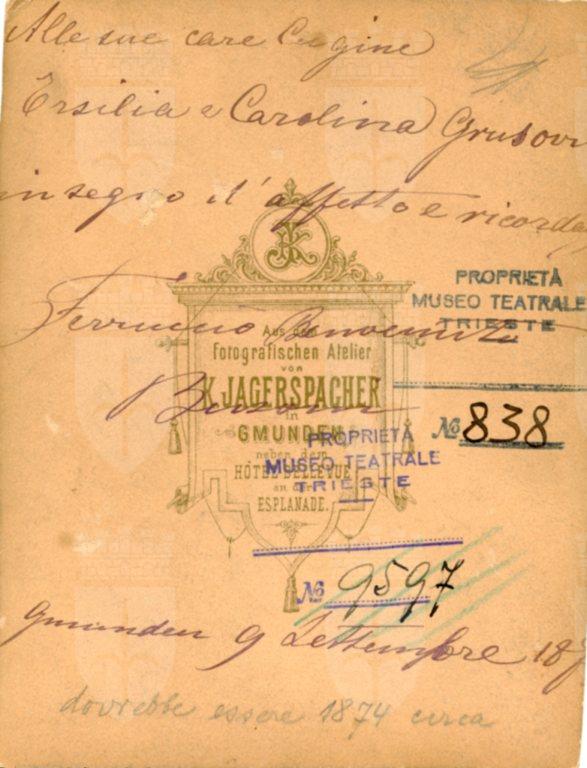 Alle sue care Cugine
Ersilia e Carolina Grusovi
in segno d'affetto e ricordo
JK
PROPRIETÀ
MUSEO TEATRALE
TRIESTE
Ferruccio Benvenuto
Aus dem
Fotografischen Atelier
von
K. JAGERSPACHER
Busoni
in
GMUNDEN
№ 838
PROPRIETÀ
MUSEO TEATRALE
TRIESTE
neben dem
HÔTEL BELLEVUE
an der
ESPLANADE.
№ 9597
Gmunden 9 Settembre 18
dovrebbe essere 1874 circa